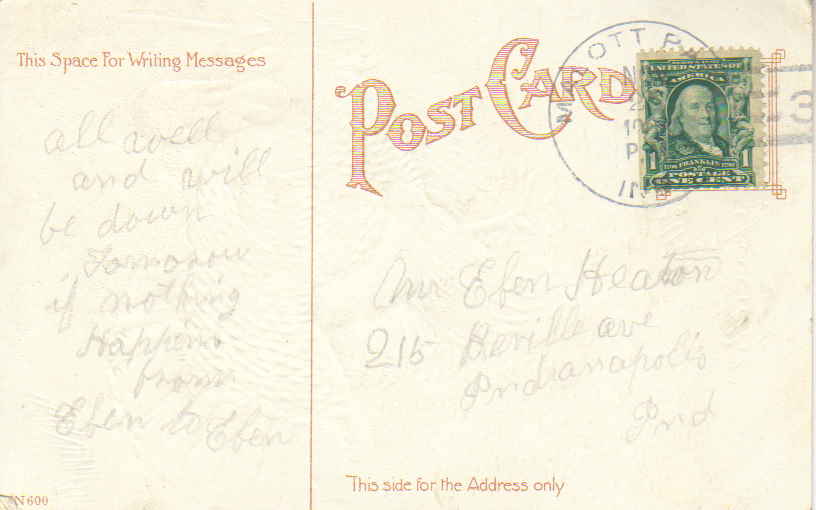 This Space For Writing Messages
POST CARD
UNITED STATES OF
AMERICA
1 FRANKLIN 1
POSTAGE
ONE CENT
OTT
3
all well
and will
be down
Tomorrow
if nothing
Happens
from
Eben to Eben
Mr Eben Heaton
215 Beville ave
Indianapolis
Ind
This side for the Address only
N600